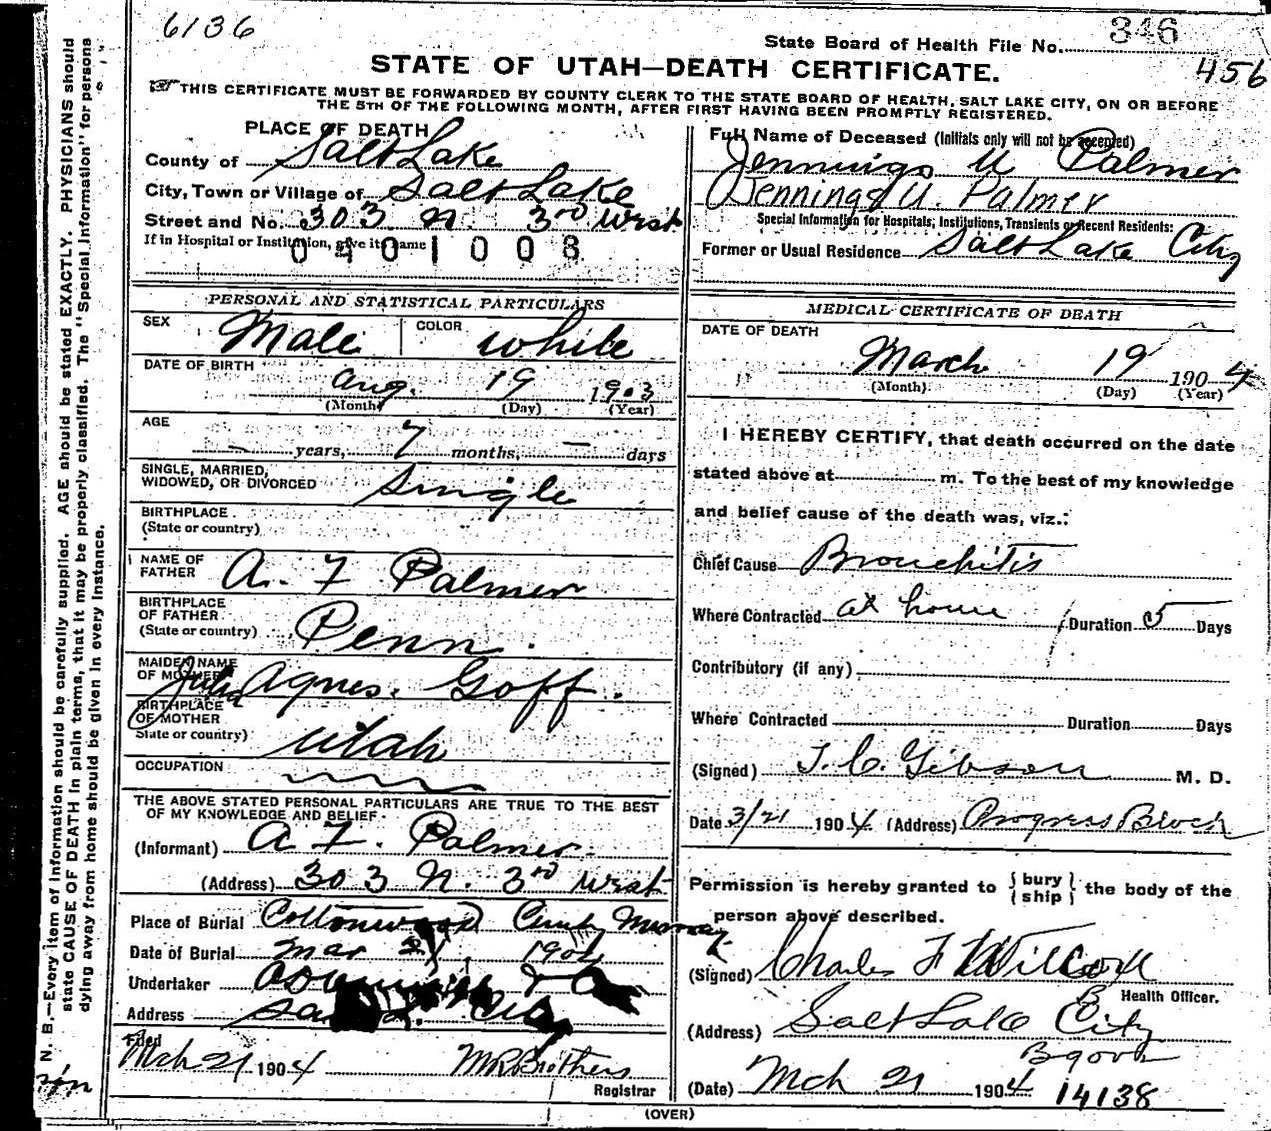 6136
346
State Board of Health File No.
456
STATE OF UTAH—DEATH CERTIFICATE.
☞ THIS CERTIFICATE MUST BE FORWARDED BY COUNTY CLERK TO THE STATE BOARD OF HEALTH, SALT LAKE CITY, ON OR BEFORE
THE 5TH OF THE FOLLOWING MONTH, AFTER FIRST HAVING BEEN PROMPTLY REGISTERED.
PLACE OF DEATH
County of Salt Lake
City, Town or Village of Salt Lake
Street and No. 303 N. 3rd West
If in Hospital or Institution, give its name
0401008
Full Name of Deceased (Initials only will not be accepted)
Jennings U Palmer
Jennings U. Palmer
Special Information for Hospitals, Institutions, Transients or Recent Residents:
Former or Usual Residence Salt Lake City
PERSONAL AND STATISTICAL PARTICULARS
SEX Male COLOR white
DATE OF BIRTH
Aug. 19 1903
(Month) (Day) (Year)
AGE
— years, 7 months, — days
SINGLE, MARRIED,
WIDOWED, OR DIVORCED Single
BIRTHPLACE
(State or country)
NAME OF
FATHER A. F Palmer
BIRTHPLACE
OF FATHER
(State or country) Penn.
MAIDEN NAME
OF MOTHER Julia Agnes. Goff.
BIRTHPLACE
OF MOTHER
State or country) Utah
OCCUPATION
THE ABOVE STATED PERSONAL PARTICULARS ARE TRUE TO THE BEST
OF MY KNOWLEDGE AND BELIEF
(Informant) A F. Palmer.
(Address) 303 N. 3rd West
Place of Burial Cottonwood Murray
Date of Burial Mar 21, 1904
Undertaker
Address City
Filed
Mch 21 1904 Brothers
Registrar
MEDICAL CERTIFICATE OF DEATH
DATE OF DEATH
March 19 1904
(Month) (Day) (Year)
I HEREBY CERTIFY, that death occurred on the date
stated above at m. To the best of my knowledge
and belief cause of the death was, viz.:
Chief Cause Bronchitis
Where Contracted at home Duration 5 Days
Contributory (if any)
Where Contracted Duration Days
(Signed) T. C. Gibson M. D.
Date 3/21 1904 (Address) Progress Block
Permission is hereby granted to {bury
ship} the body of the
person above described.
(Signed) Charles F Wilcox
Health Officer.
(Address) Salt Lake City
(Date) Mch 21 1904 14138
(OVER)
N. B.—Every item of information should be carefully supplied. AGE should be stated EXACTLY. PHYSICIANS should
state CAUSE OF DEATH in plain terms, that it may be properly classified. The "Special Information" for persons
dying away from home should be given in every instance.